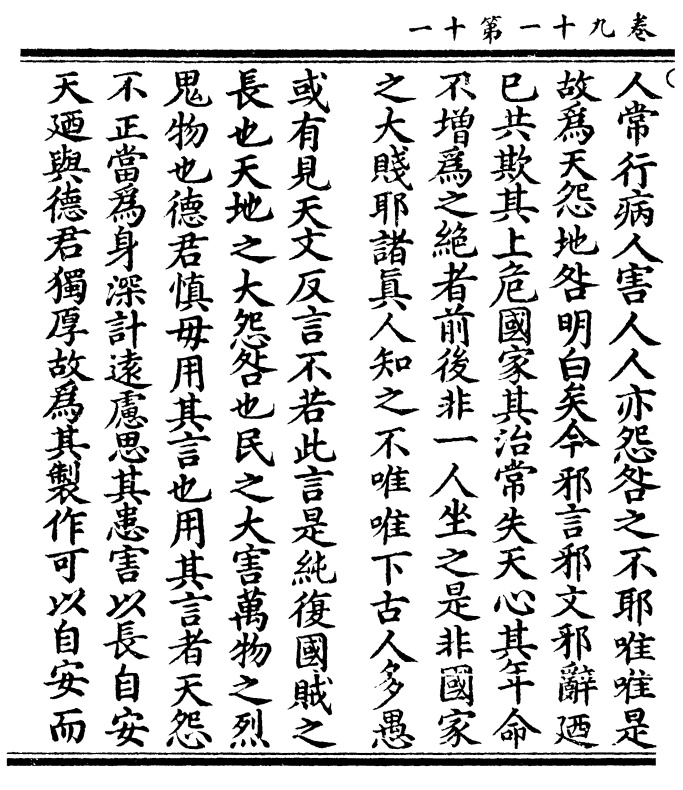 卷九十一第十一
人常行病人害人人亦怨咎之不耶唯唯是
故爲天怨地咎明白矣今邪言邪文邪辭迺
已共欺其上危國家其治常失天心其年命
不增爲之絕者前後非一人坐之是非國家
之大賤耶諸眞人知之不唯唯下古人多愚
或有見天文反言不若此言是純復國賊之
長也天地之大怨咎也民之大害萬物之烈
鬼物也德君慎毋用其言也用其言者天怨
不正當爲身深計遠慮思其患害以長自安
天迺與德君獨厚故爲其製作可以自安而